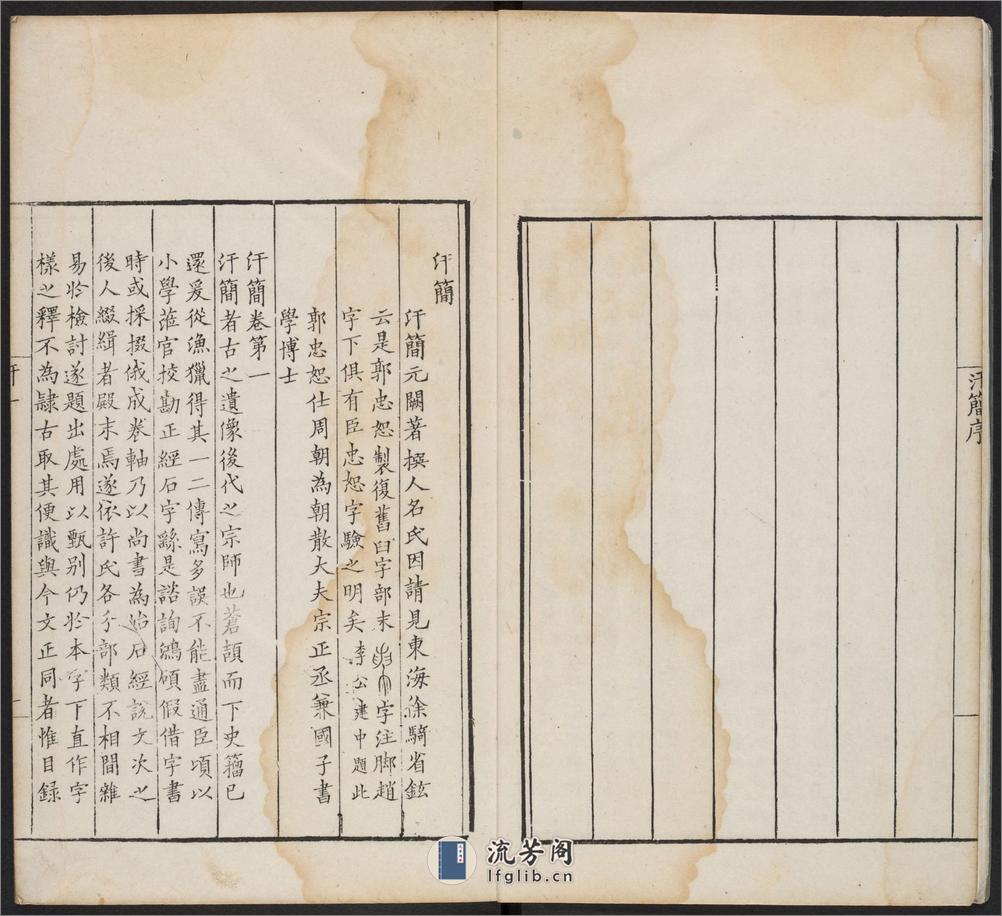 汗簡序
汗簡
汗簡元闕著撰人名氏因請見東海徐騎省鉉
云是郭忠恕製復舊曰字部末字注脚趙
字下俱有臣忠恕字驗之明矣李公建中題此
郭忠恕仕周朝為朝散大夫宗正丞兼國子書
學博士
汗簡卷第一
汗簡者古之遺像後代之宗師也蒼頡而下史籀已
還爰從漁獵得其一二傳寫多誤不能盡通臣頃以
小學蒞官挍勘正經石字繇是諮詢鴻碩假借字書
時或採掇俄成卷軸乃以尚書為始石經說文次之
後人綴緝者殿末焉遂依許氏各分部類不相間雜
易於檢討遂題出處用以甄别仍於本字下直作字
樣之釋不為隷古取其便識與今文正同者惟目錄
汗一
一
流芳阁
lfglib.cn